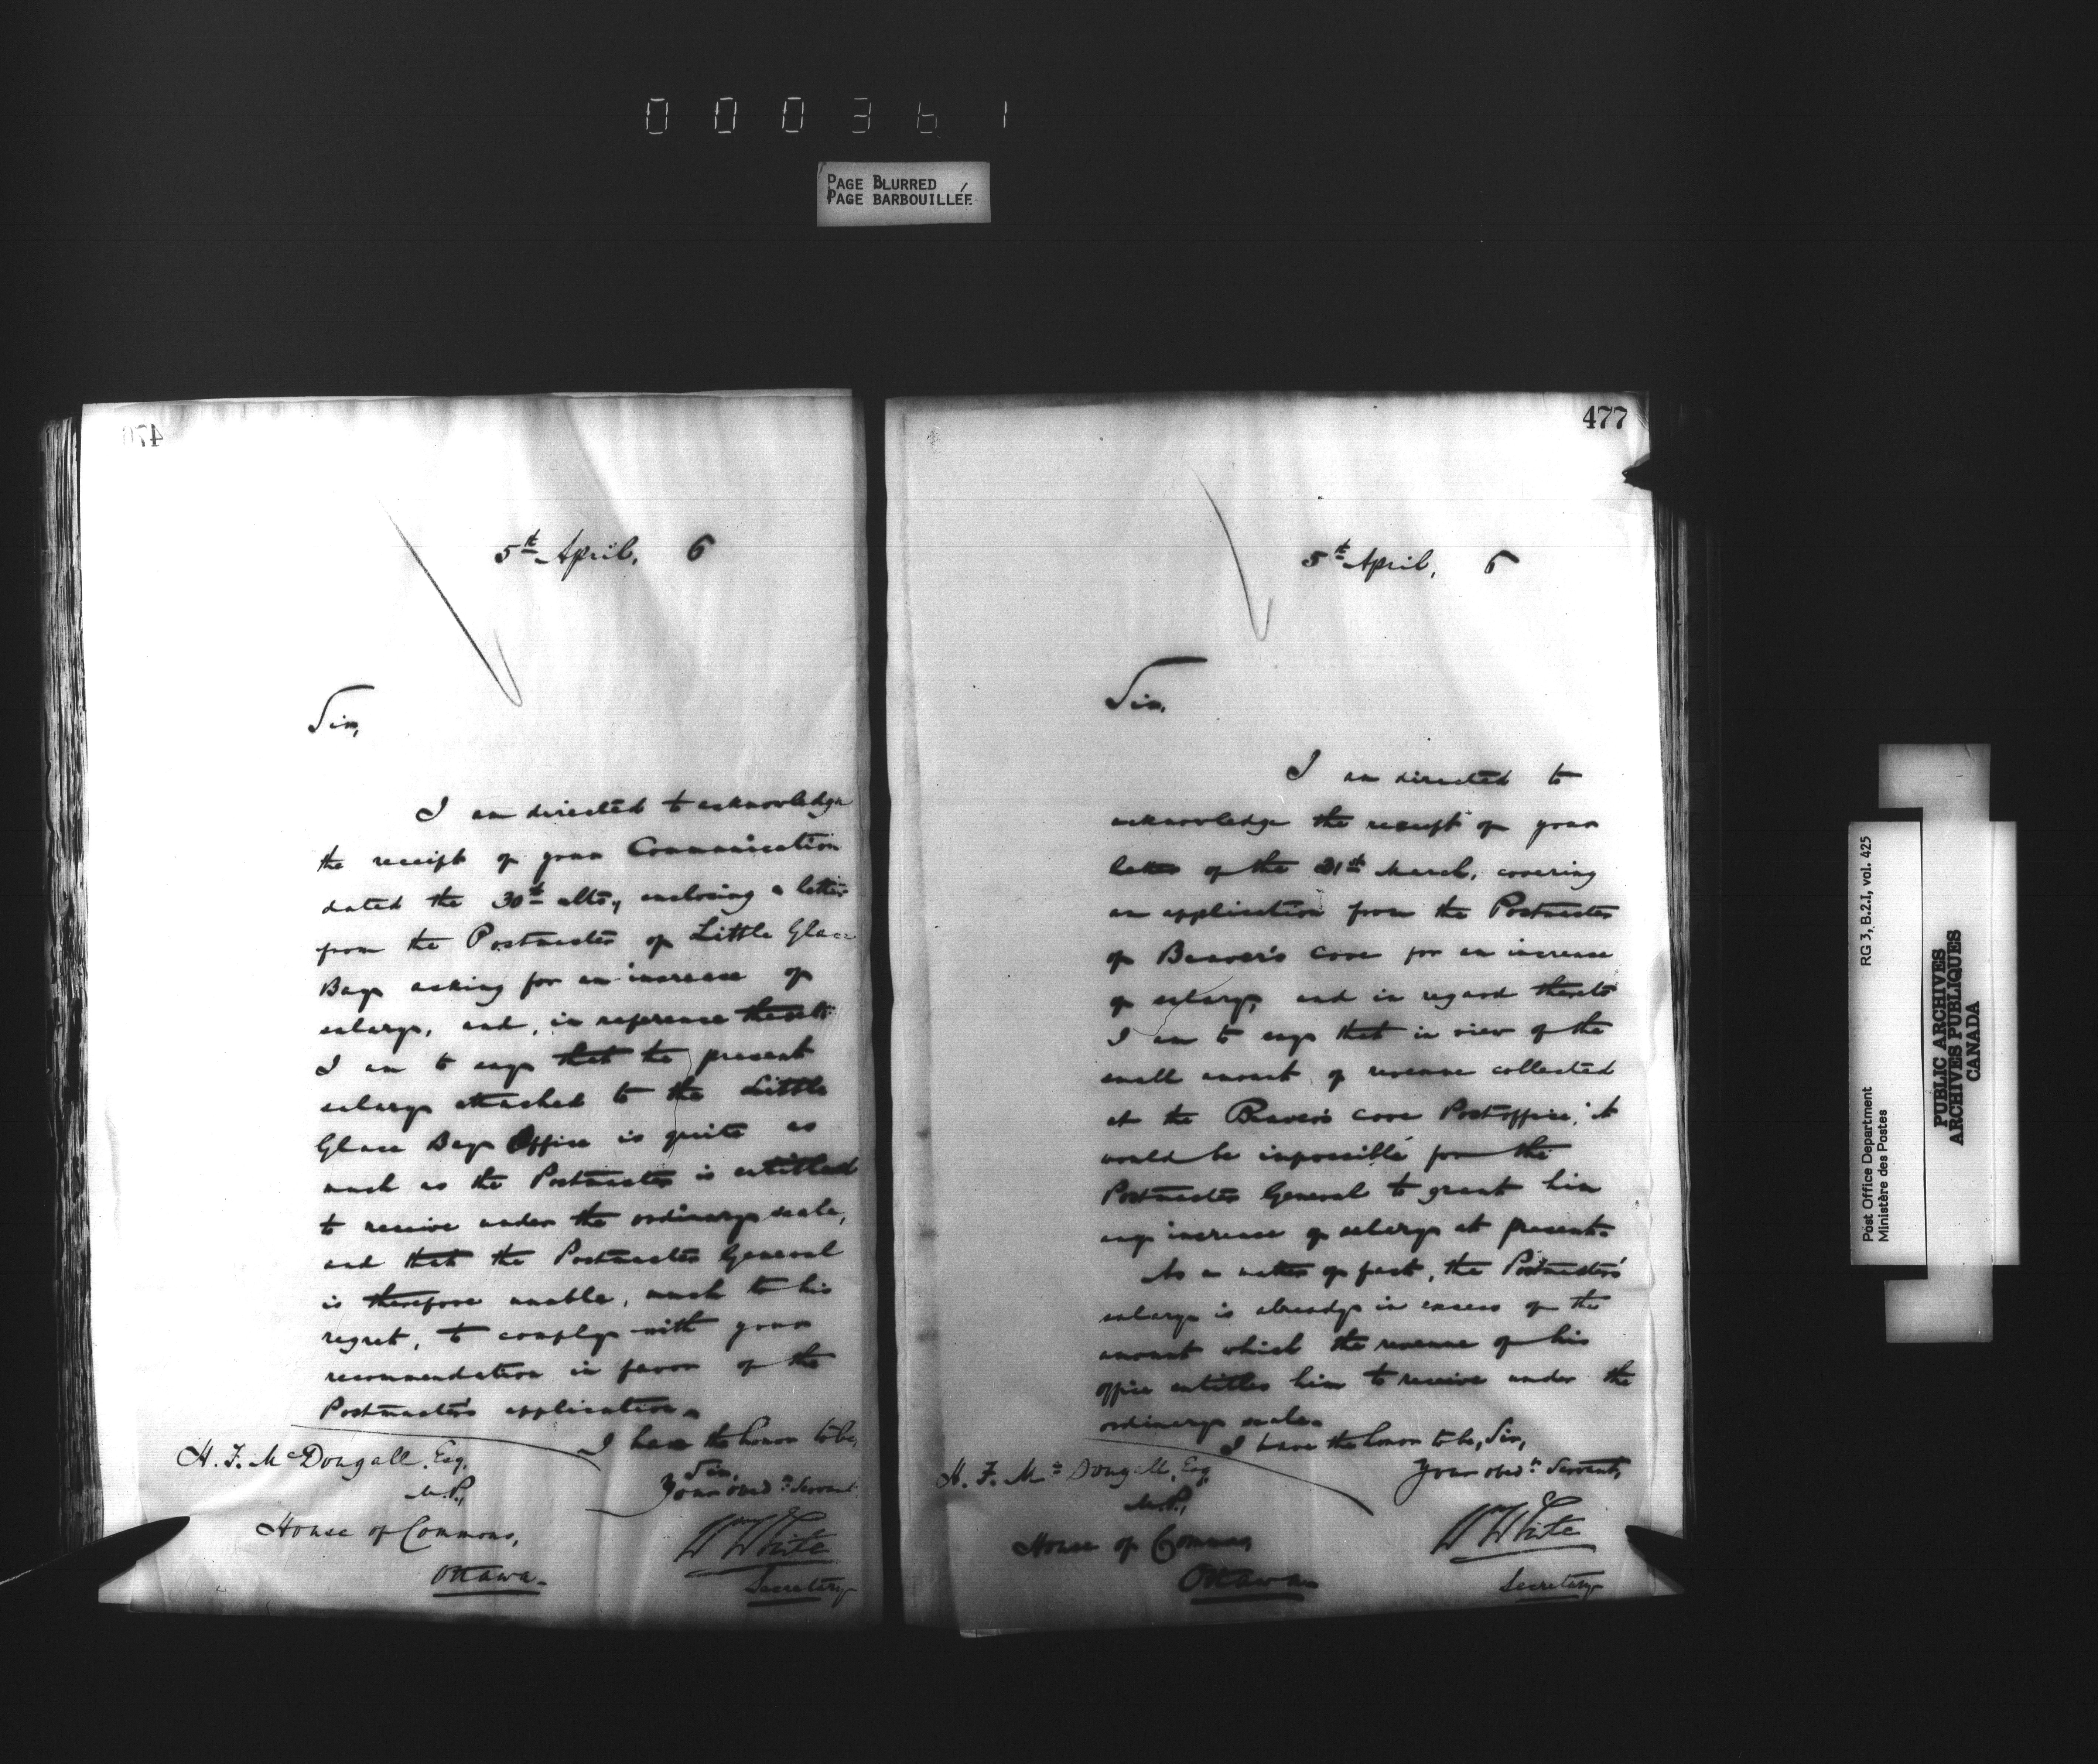 000361
PAGE BLURRED
PAGE BARBOUILLÉE
476
5th April, 6
Sir,
I am directed to acknowledge
the receipt of your Communication
dated the 30th ulto, enclosing a letter
from the Postmaster of Little Glace
Bay asking for an increase of
salary, and, in reference thereto
I am to say that the present
salary attached to the Little
Glace Bay Office is quite as
much as the Postmaster is entitled
to receive under the ordinary scale,
and that the Postmaster General
is therefore unable, much to his
regret, to comply with your
recommendation in favor of the
Postmaster's application.
I have the honor to be,
Sir,
Your obedt Servant,
H. F. McDougall, Esq.
M.P.,
House of Commons,
Ottawa.
Wm White
Secretary
477
5th April, 6
Sir,
I am directed to
acknowledge the receipt of your
letter of the 31st March, covering
an application from the Postmaster
of Beaver's Cove for an increase
of salary, and in regard thereto
I am to say that in view of the
small amount of revenue collected
at the Beaver's Cove Post office, it
would be impossible for the
Postmaster General to grant him
any increase of salary at present.
As a matter of fact, the Postmaster's
salary is already in excess of the
amount which the revenue of his
office entitles him to receive under the
ordinary scale.
I have the honor to be, Sir,
Your obedt Servant,
H. F. Mc Dougall, Esq.
M.P.,
House of Commons
Ottawa
Wm White
Secretary
Post Office Department RG 3, B.2.I, vol. 425
Ministère des Postes
PUBLIC ARCHIVES
ARCHIVES PUBLIQUES
CANADA